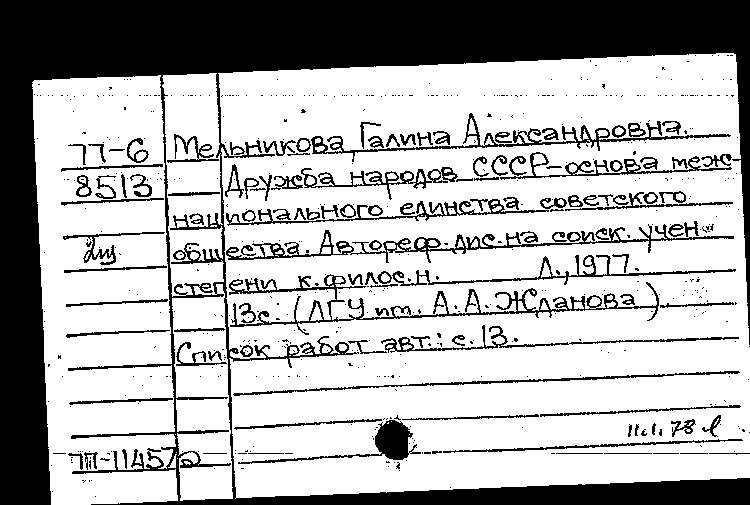 77-6 Мельникова, Галина Александровна.
8513 Дружба народов СССР-основа меж-
национального единства советского
2щ общества. Автореф.дис.на соиск.учен.
степени к.филос.н. Л.,1977.
13с. (ЛГУ им. А.А.Жданова).
Список работ авт.: с.13.
11.1.78